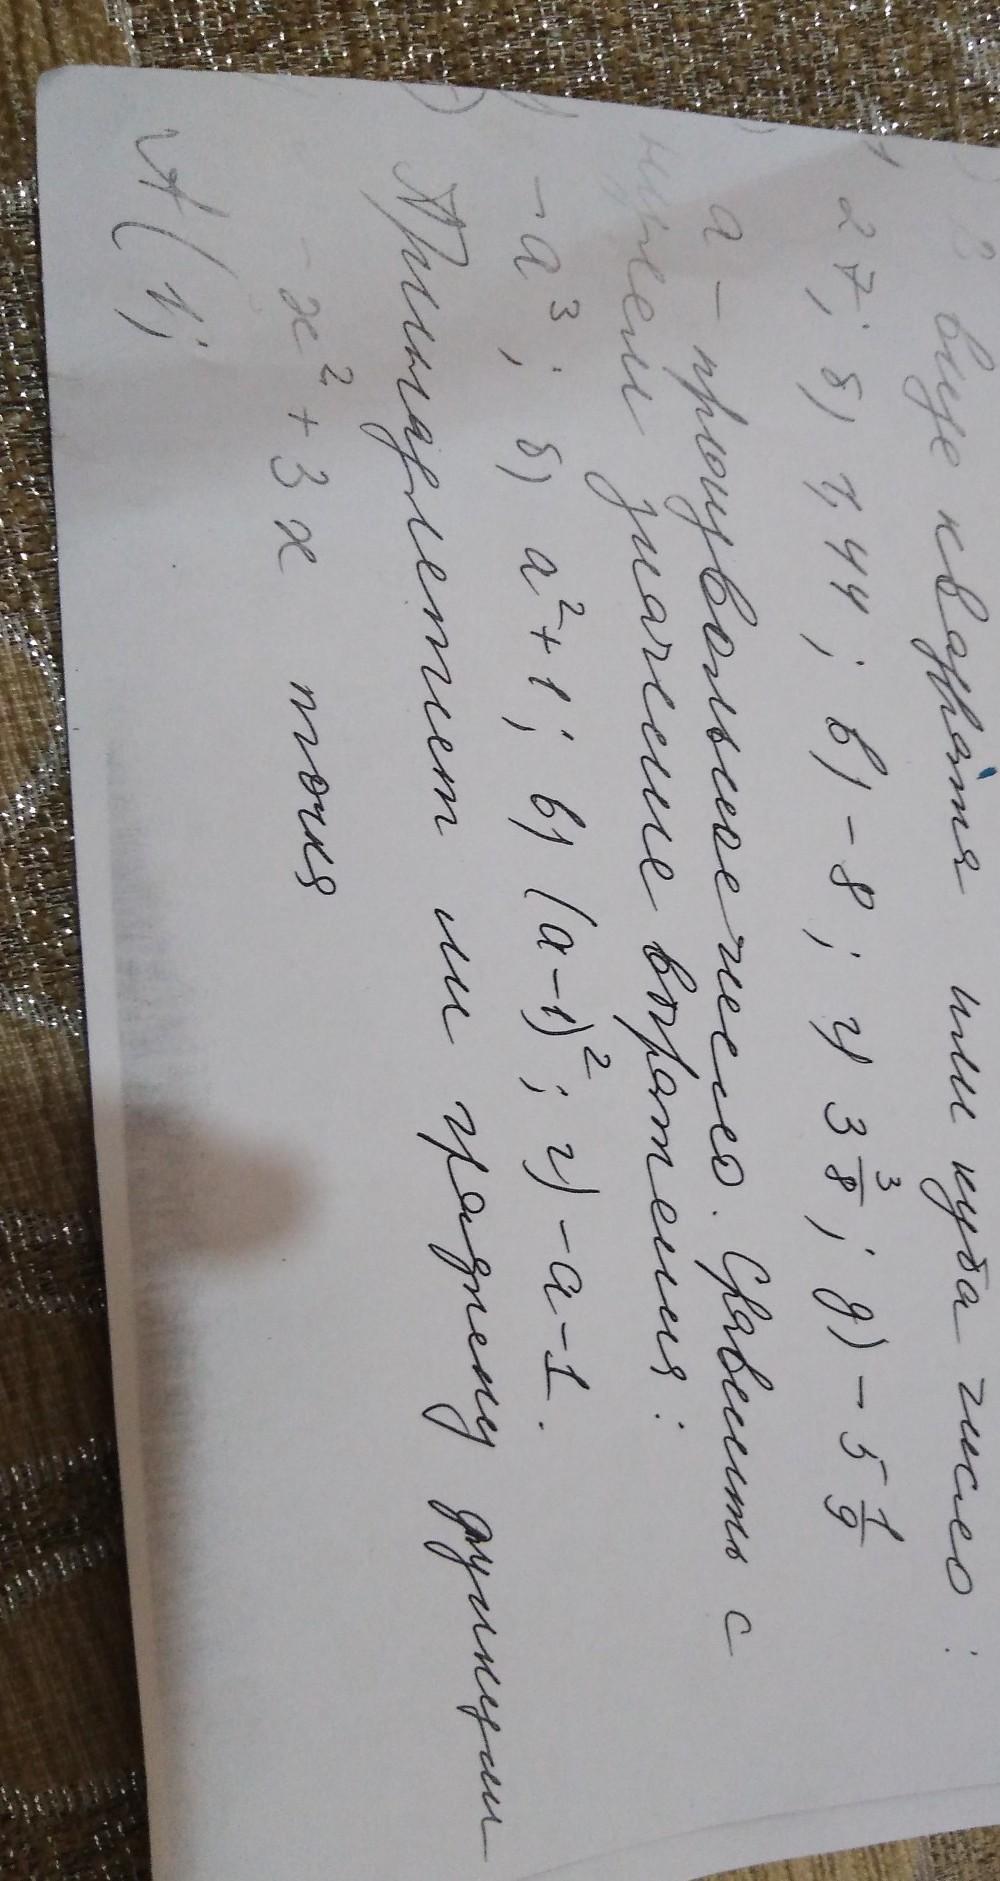 В виде квадрата или куба число:
27; б) 1,44; в) -8; г) 3 3/8; д) -5 1/9
а - произвольное число. Сравнить с
нулем значение вфратения:
-a³; б) a²+1; в) (a-1)²; г) -a-1.
Принадлежит ли графику функции
-x²+3x точка
A(1;